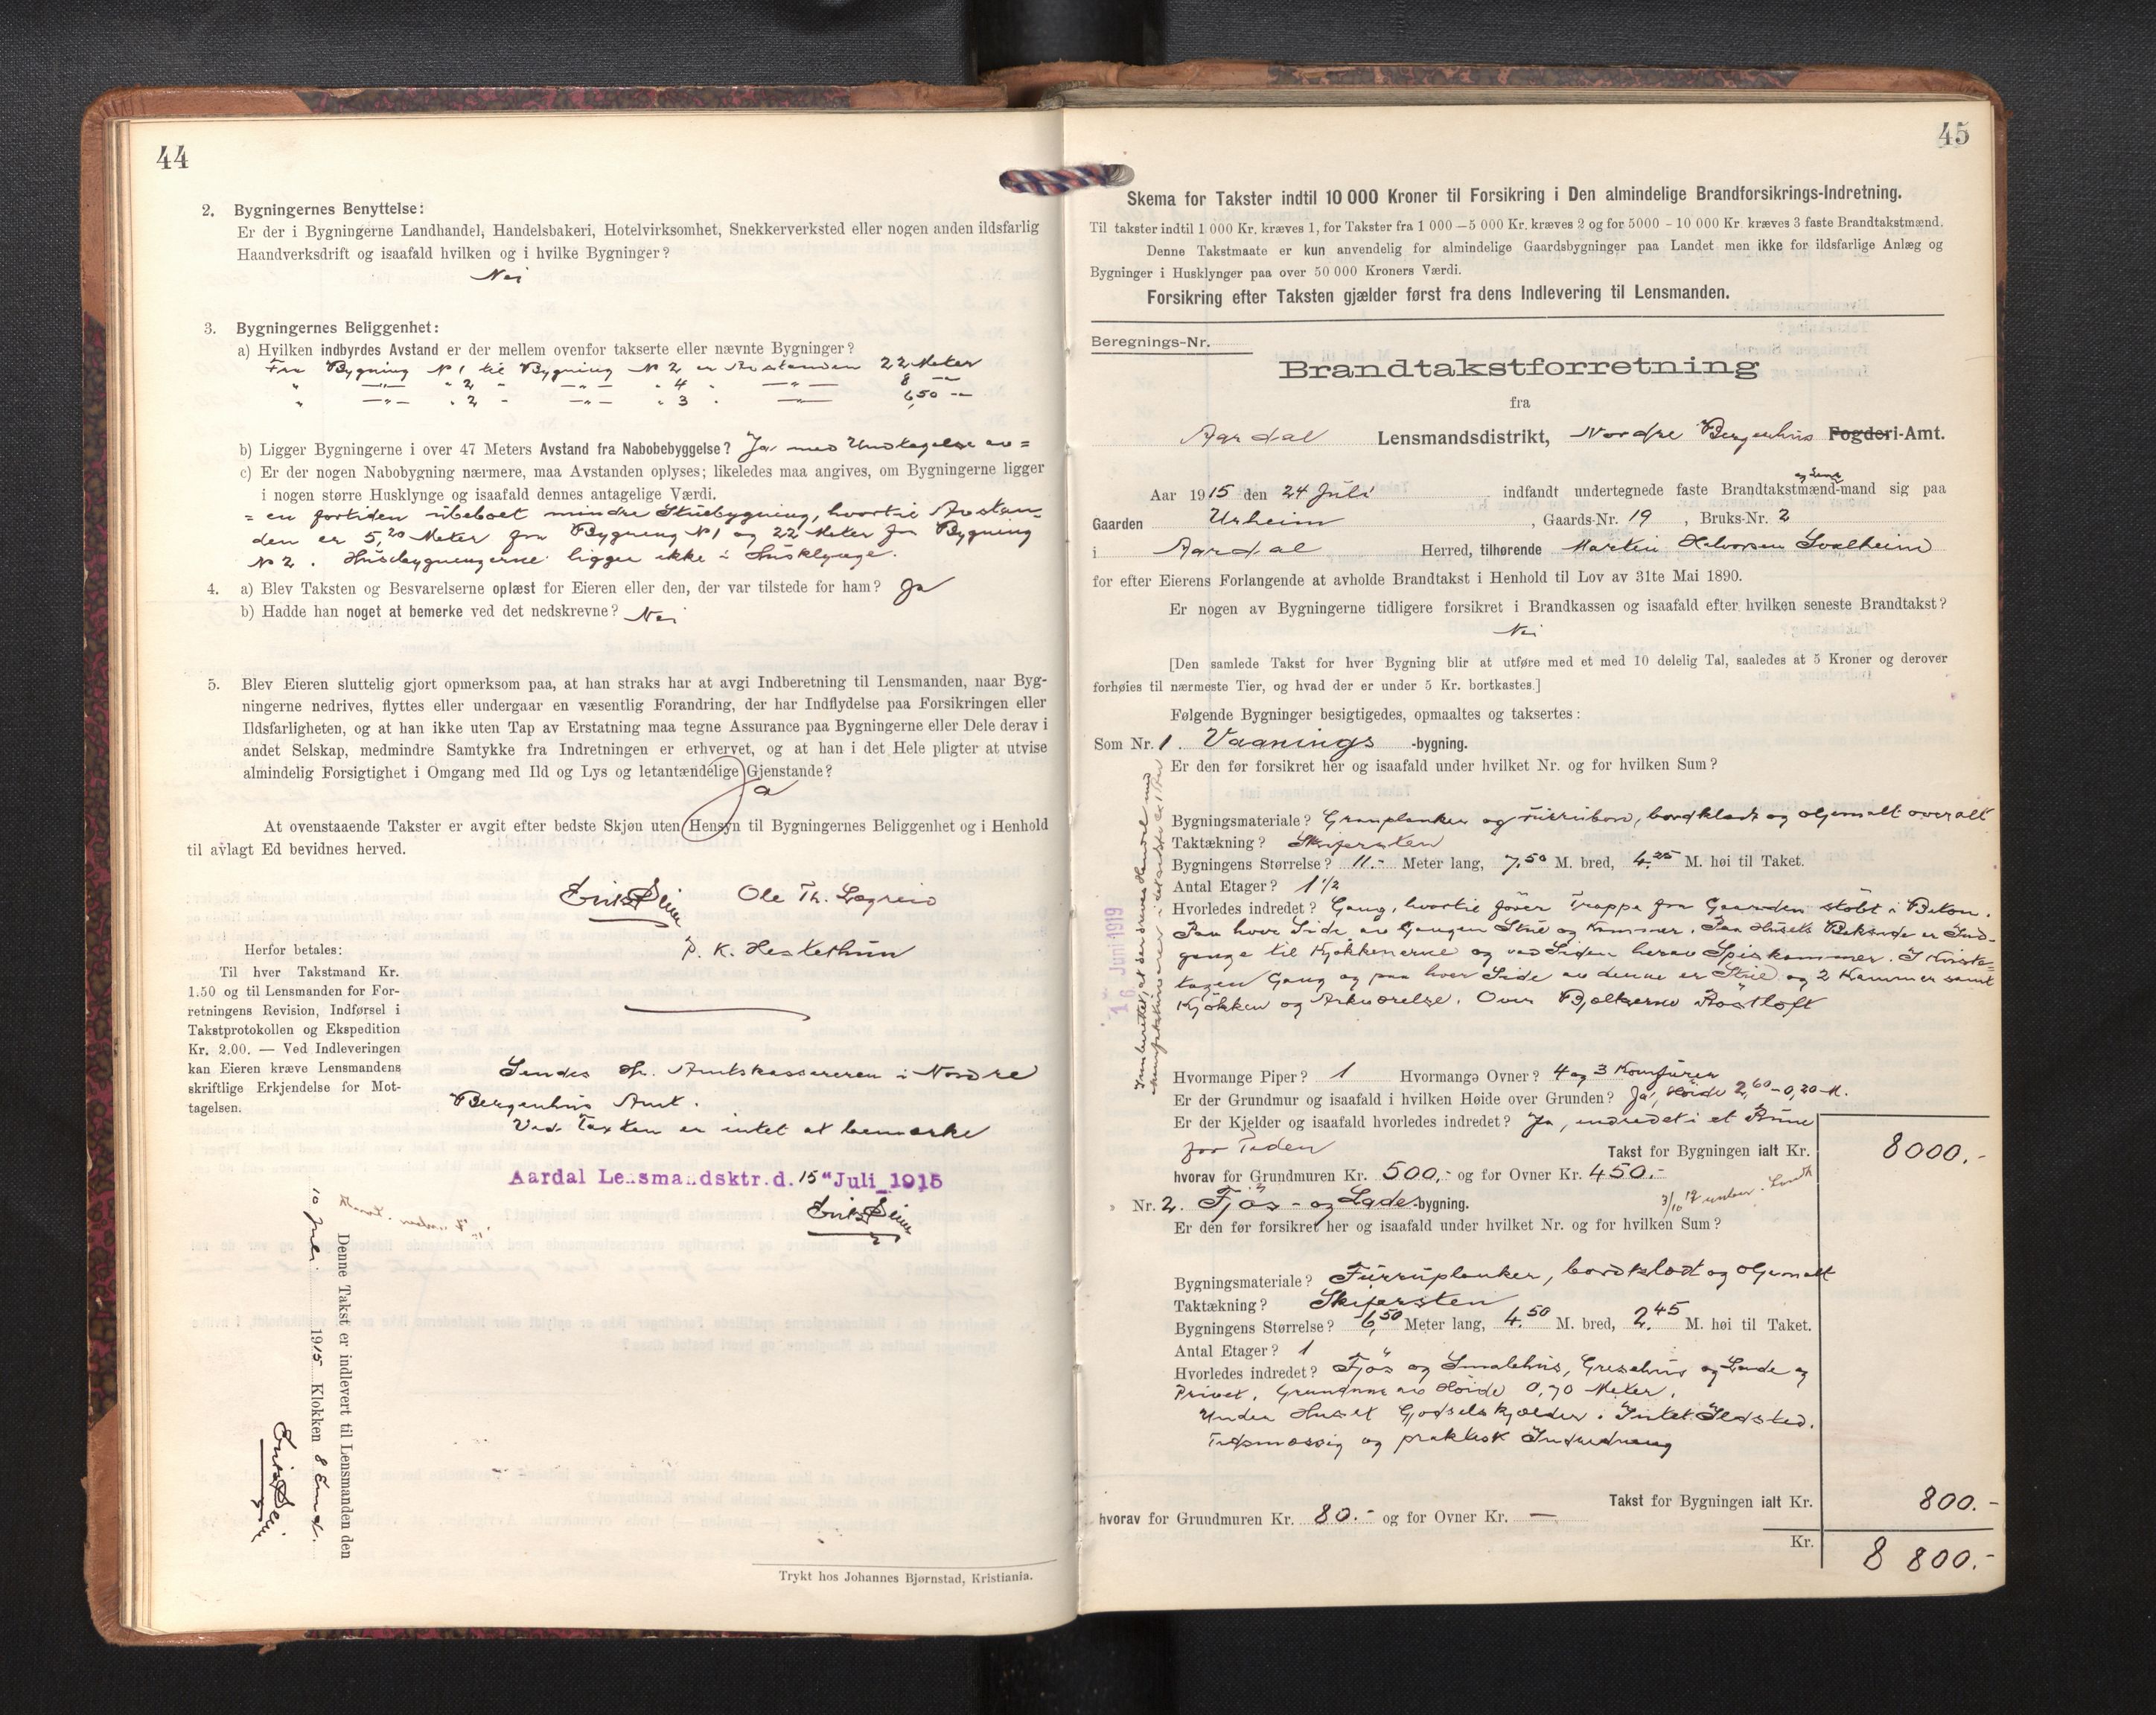 44
2. Bygningernes Benyttelse:
Er der i Bygningerne Landhandel, Handelsbakeri, Hotelvirksomhet, Snekkerverksted eller nogen anden ildsfarlig
Haandverksdrift og isaafald hvilken og i hvilke Bygninger?
Nei
3. Bygningernes Beliggenhet:
a) Hvilken indbyrdes Avstand er der mellem ovenfor takserte eller nævnte Bygninger?
Fra Bygning N 1 til Bygning N 2 er Avstanden 22 Meter
" —"— " 2 " —"— " 4 " —"— 8 —"—
" —"— " 2 " —"— " 3 " —"— 6,50 —"—
b) Ligger Bygningerne i over 47 Meters Avstand fra Nabobebyggelse? Ja med Undtagelse av =
c) Er der nogen Nabobygning nærmere, maa Avstanden oplyses; likeledes maa angives, om Bygningerne ligger
i nogen større Husklynge og isaafald dennes antagelige Værdi.
= en fortiden ubeboet mindre Stuebygning, hvortil Avstan-
den er 5,20 Meter fra Bygning N 1 og 22 Meter fra Bygning
N 2. Husbygningerne ligger ikke i Husklynge.
4. a) Blev Taksten og Besvarelserne oplæst for Eieren eller den, der var tilstede for ham? Ja
b) Hadde han noget at bemerke ved det nedskrevne? Nei
5. Blev Eieren sluttelig gjort opmerksom paa, at han straks har at avgi Indberetning til Lensmanden, naar Byg-
ningerne nedrives, flyttes eller undergaar en væsentlig Forandring, der har Indflydelse paa Forsikringen eller
Ildsfarligheten, og at han ikke uten Tap av Erstatning maa tegne Assurance paa Bygningerne eller Dele derav i
andet Selskap, medmindre Samtykke fra Indretningen er erhvervet, og at han i det Hele pligter at utvise
almindelig Forsigtighet i Omgang med Ild og Lys og letantændelige Gjenstande?
Ja
At ovenstaaende Takster er avgit efter bedste Skjøn uten Hensyn til Bygningernes Beliggenhet og i Henhold
til avlagt Ed bevidnes herved.
Ole Th. Lægreid
P. K. Hestethun
Herfor betales:
Til hver Takstmand Kr.
1.50 og til Lensmanden for For-
retningens Revision, Indførsel i
Takstprotokollen og Ekspedition
Kr. 2.00. — Ved Indleveringen
kan Eieren kræve Lensmandens
skriftlige Erkjendelse for Mot-
tagelsen.
Sendes Hr. Amtskassereren i Nordre
Bergenhus Amt.
Ved Taxten er intet at bemærke
Aardal Lensmandsktr. d. 15 "Juli 1915
Denne Takst er indlevert til Lensmanden den
10 Juli 1915 Klokken 8 Emd.
Trykt hos Johannes Bjørnstad, Kristiania.
45
Skema for Takster indtil 10 000 Kroner til Forsikring i Den almindelige Brandforsikrings-Indretning.
Til takster indtil 1 000 Kr. kræves 1, for Takster fra 1 000 — 5 000 Kr. kræves 2 og for 5000 - 10 000 Kr. kræves 3 faste Brandtakstmænd.
Denne Takstmaate er kun anvendelig for almindelige Gaardsbygninger paa Landet men ikke for ildsfarlige Anlæg og
Bygninger i Husklynger paa over 50 000 Kroners Værdi.
Forsikring efter Taksten gjælder først fra dens Indlevering til Lensmanden.
Beregnings-Nr.
Brandtakstforretning
fra
Aardal Lensmandsdistrikt, Nordre Bergenhus Fogderi-Amt.
Aar 1915 den 24 Juli indfandt undertegnede faste Brandtakstmænd og Lens-mand sig paa
Gaarden Urheim, Gaards-Nr. 19, Bruks-Nr. 2
i Aardal Herred, tilhørende Martin Halvorsen Svalheim
for efter Eierens Forlangende at avholde Brandtakst i Henhold til Lov av 31te Mai 1890.
Er nogen av Bygningerne tidligere forsikret i Brandkassen og isaafald efter hvilken seneste Brandtakst?
Nei
[Den samlede Takst for hver Bygning blir at utføre med et med 10 delelig Tal, saaledes at 5 Kroner og derover
forhøies til nærmeste Tier, og hvad der er under 5 Kr. bortkastes.]
Følgende Bygninger besigtigedes, opmaaltes og taksertes:
Som Nr. 1. Vaanings-bygning.
Er den før forsikret her og isaafald under hvilket Nr. og for hvilken Sum?
Bygningsmateriale? Granplanker og furubord, bordklædt og oljemalt overalt
Taktækning? Skifersten
Bygningens Størrelse? 11.- Meter lang, 7,50 M. bred, 4,25 M. høi til Taket.
Antal Etager? 1 1/2
Hvorledes indredet? Gang, hvortil fører Trappe fra Gaarden støbt i Beton.
Paa hver Side av Gangen Stue og Kammer. Paa Husets Bakside er Ind-
gange til Kjøkkenerne og ved Siden herav Spiskammer. I Kvist-
tagen Gang og paa hver Side av denne er Stue og 2 Kammer samt
Kjøkken og Arkværelse. Over Bjælkerne Røstloft
16. Juni 1919
Hvormange Piper? 1 Hvormange Ovner? 4 og 3 Komfurer
Er der Grundmur og isaafald i hvilken Høide over Grunden? Ja, Høide 2,60 - 0,20 M.
Er der Kjelder og isaafald hvorledes indredet? Ja, indredet i et Rum
for Tiden
Takst for Bygningen ialt Kr. 8000.-
hvorav for Grundmuren Kr. 500,- og for Ovner Kr. 450.-
" Nr. 2. Fjøs- og Lade-bygning.
Er den før forsikret her og isaafald under hvilket Nr. og for hvilken Sum?
Bygningsmateriale? Furruplanker, bordklædt og oljemalt
Taktækning? Skifersten
Bygningens Størrelse? 6,50 Meter lang, 4,50 M. bred, 2,45 M. høi til Taket.
Antal Etager? 1
Hvorledes indredet? Fjøs og Smalehus, Grisehus og Lade og
Privet. Grundmur av Høide 0,70 Meter.
Under Huset Gjødselskjælder. Intet Ildsted.
Tidsmæssig og praktisk Indredning
Takst for Bygningen ialt Kr. 800.-
hvorav for Grundmuren Kr. 80.- og for Ovner Kr. —
Kr. 8 800.-